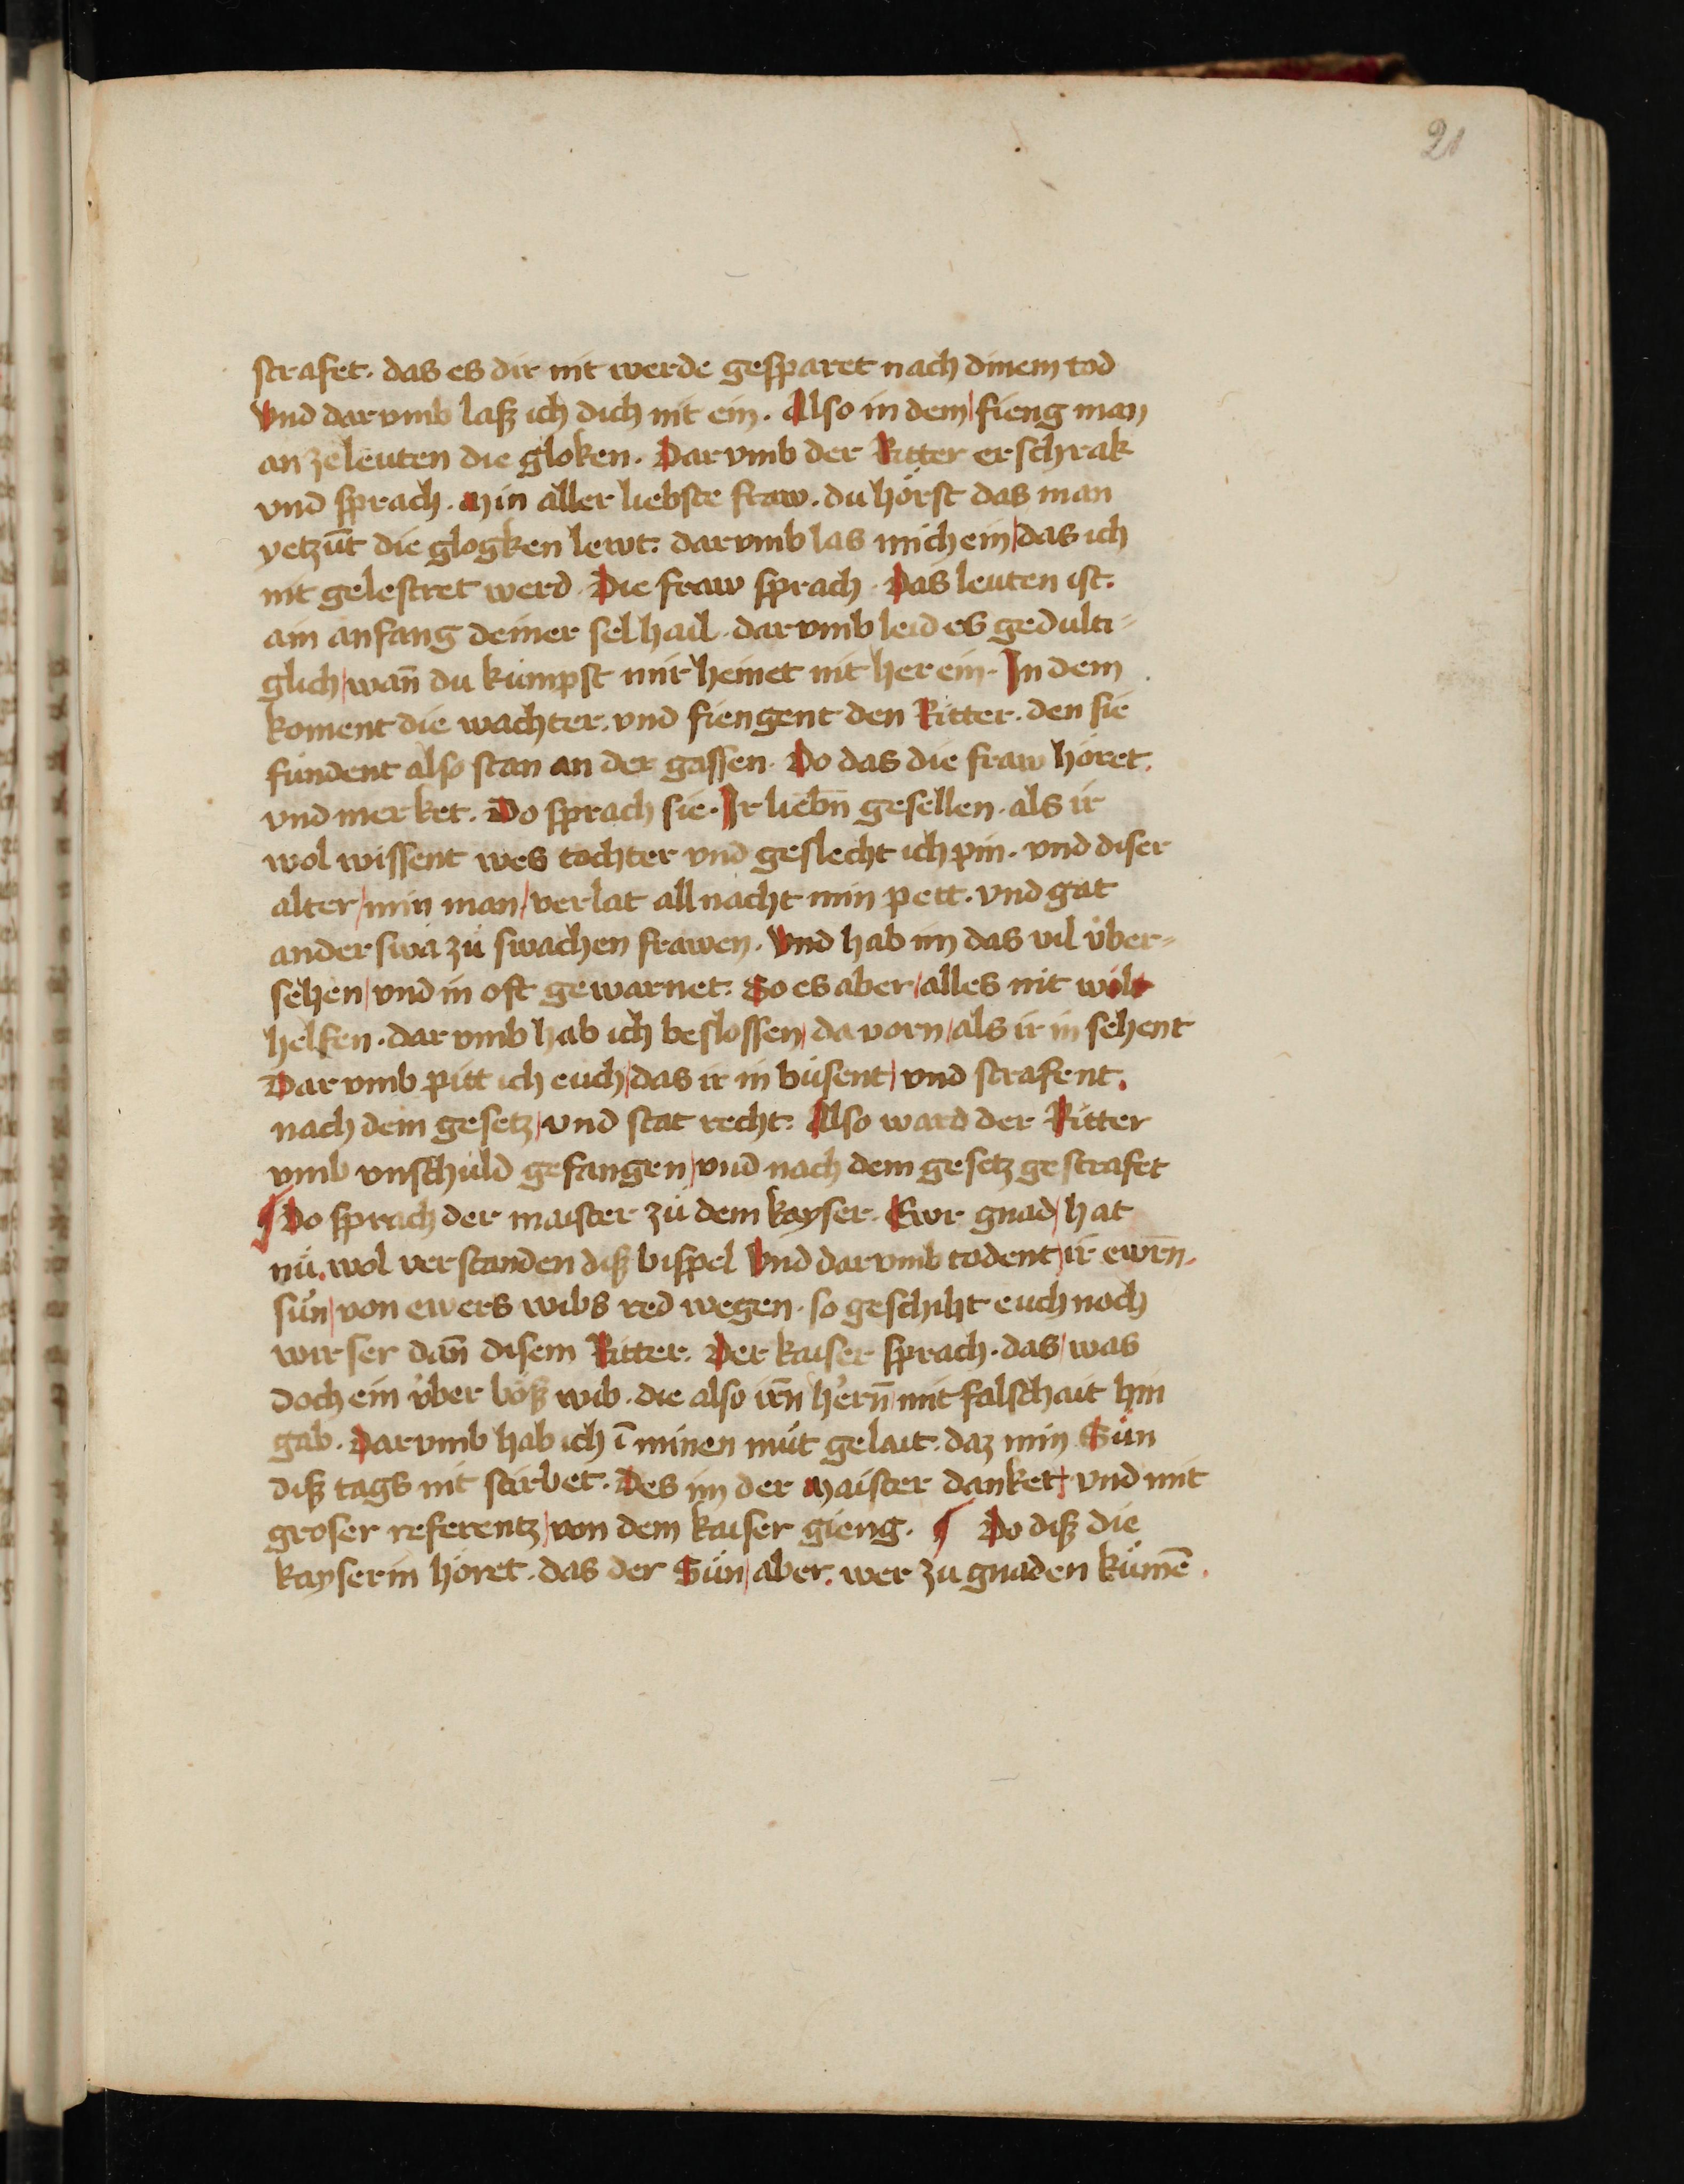 21
strafet. das es dir nit werde gesparet nach dinem tod
Vnd dar vmb laß ich dich nit ein. Also in dem | fieng man
an ze leuten die gloken. Dar vmb der Ritter erschrak
vnd sprach. Min aller liebste fraw. du hörst das man
yetzūt die glogken lewt: dar vmb las mich ein | das ich
nit gelestret werd. Die fraw sprach. Das leuten ist.
ain anfang deiner sel hail. dar vmb leid es gedulti-
glich | wan̄ du kumpst mir heinet nit her ein. In dem
koment die wachter. vnd fiengent den Ritter. den sie
fundent also stan an der gassen. Do das die fraw höret.
vnd merket. Do sprach sie. Ir liebn̄ gesellen. als ir
wol wissent wes tochter vnd geslecht ich pin. vnd diser
alter | min man | verlat all nacht min pett. vnd gat
ander swa zů swachen frawen. Vnd hab im das vil über-
sehen | vnd in oft gewarnet: So es aber | alles nit wil
helfen. dar vmb hab ich beslossen | da vorn | als ir in sehent
Dar vmb pitt ich euch | das ir in büsent | vnd strafent.
nach dem gesetz | vnd stat recht: Also ward der Ritter
vmb vnschuld gefangen | vnd nach dem gesetz gestrafet
¶ Do sprach der maister zů dem kayser. Ewr gnad | hat
nů. wol verstanden diß bispel Vnd dar vmb todent | ir ewrn̄.
sun | von ewers wibs red wegen. so geschiht euch noch
wirser dan̄ disem Ritter. Der kaiser sprach. das | was
doch ein über böß wib. die also irn̄ hern̄ | mit falschait hin
gab. Dar vmb hab ich ī minen můt gelait. daz min Sun
diß tags nit stirbet. Des im der Maister danket | vnd mit
groser referentz | von dem kaiser gieng. ¶ Do diß die
kayserin höret. das der Sun | aber. wer zu gnaden kumē.